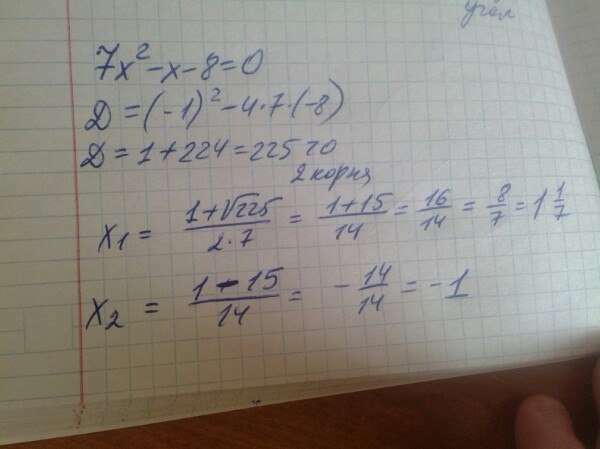 угол
7x² - x - 8 = 0
D = (-1)² - 4·7·(-8)
D = 1 + 224 = 225 > 0
2 корня
x₁ = (1+√225)/(2·7) = (1+15)/14 = 16/14 = 8/7 = 1 1/7
x₂ = (1-15)/14 = -14/14 = -1